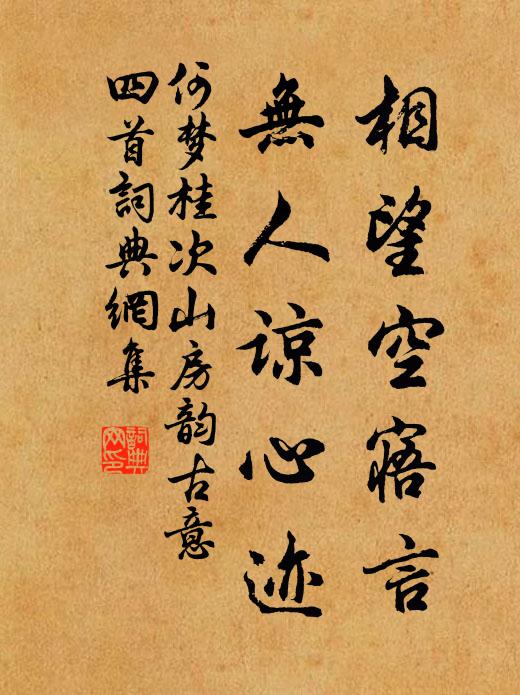 相望空寤言
無人谅心迹
何梦桂次山房韵古意
四首詞典網集
詞典网印